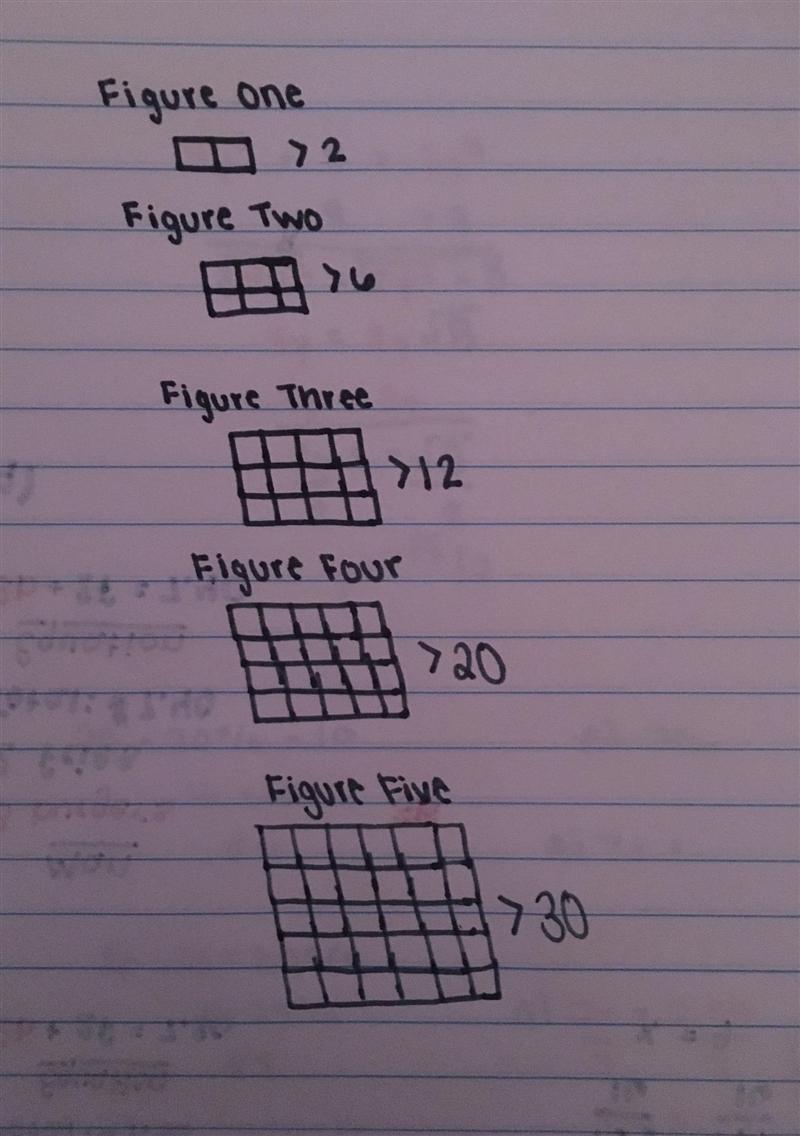 Figure One
> 2
Figure Two
> 6
Figure Three
> 12
Figure Four
> 20
Figure Five
> 30